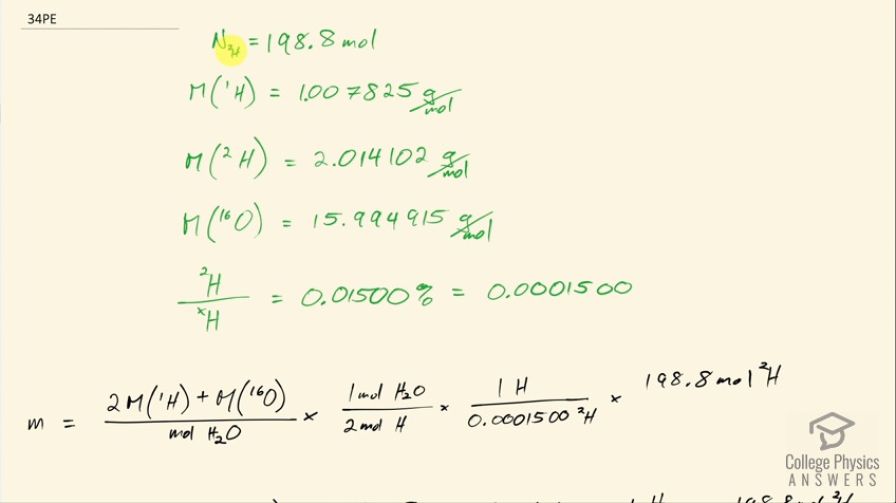 34PE
N²H = 198.8 mol
M(¹H) = 1.007825 g/mol
M(²H) = 2.014102 g/mol
M(¹⁶O) = 15.994915 g/mol
²H/ˣH = 0.01500% = 0.0001500
m = (2M(¹H) + M(¹⁶O))/mol H₂O × 1 mol H₂O/2 mol H × 1 H/0.0001500 ²H × 198.8 mol ²H
College Physics
ANSWERS